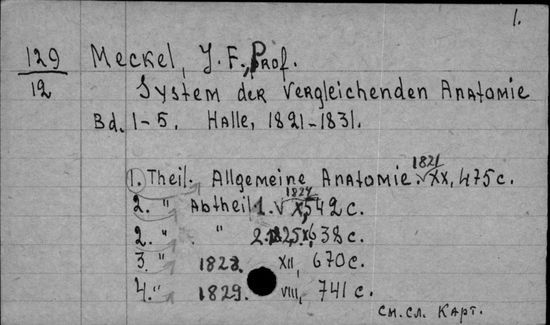 1.
129 Meckel, J. F., Prof.
12 System der vergleichenden Anatomie
Bd. 1-5. Halle, 1821-1831.
1821
1. Theil. Allgemeine Anatomie. √ XX, 475 c.
1824
2. " Abtheil 1. √ X, 542 c.
2. " " 2. 1825, XI, 638 c.
3. " 1828. XII, 670 c.
4. " 1829. VIII, 741 c.
См. сл. карт.